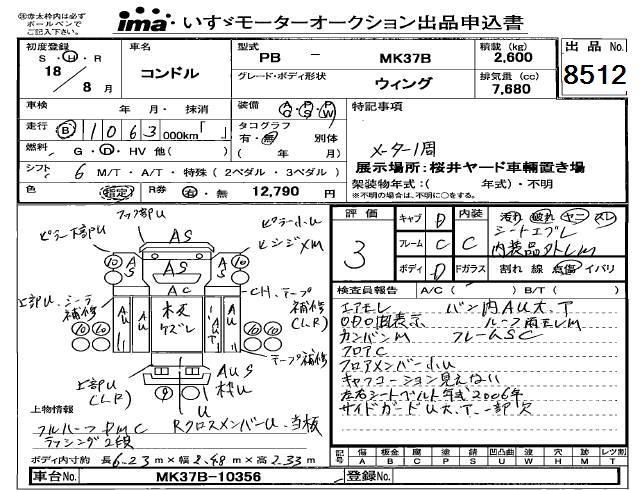 ※赤太枠内は必ず
ボールペンで
ご記入下さい。
ima いすゞモーターオークション出品申込書
初度登録
S・H・R
18
8 月
車名
コンドル
型式
PB － MK37B
グレード・ボディ形状
ウィング
積載 (kg)
2,600
排気量 (cc)
7,680
出品 No.
8512
車検 年 月・抹消
走行 B 1063 000km「 」
燃料 G・D・HV 他( )
シフト 6 M/T・A/T・特殊(2ペダル・3ペダル)
色 (指定) R券 有・無 12,790 円
装備 AC PS PW
タコグラフ
有・無 別体
( 年 月)
特記事項
メーター1周
展示場所:桜井ヤード車輛置き場
架装物年式:( 年式)・不明
※不明の場合は、不明に○をする。
フック部U
ピラー下部U
ピラー小U
ヒンジXM
AS
AS
AS
AS
AC
10
10
10
10
上部U、シーラ
補修
CH、テープ
補修
(LR)
AU
AU
木更
ケズレ
テープ補修
上部U
(LR)
AUS
U
9
上物情報
フルハーフ PMC
ラッシング2段
Rクロスメンバー U、当板
ボディ内寸約 長 6.23 m × 幅 2.48 m × 高 2.33 m
車台No. MK37B-10356
登録No.
評価
3
キャブ D
フレーム C
ボディ D
内装 C
Fガラス
汚れ 破れ ヤニ スレ
シートエプレ
内装品外レM
割れ 線 点傷 イバリ
検査員報告 A/C ( ) B/T ( )
エアモレ バン内AU大.T
ODO旧表示 ルーフ雨モレM
カンバンM フレームSC
フロアC
フロアメンバー小U
キャブコーション見えない
左右シートベルト年式2006年
サイドガードU大.T.一部欠
記号 傷 A 板金 B 腐 C 塗 P 錆 S 凹凸曲 U ゆがみ W 穴 H 跡 M レツ割 T